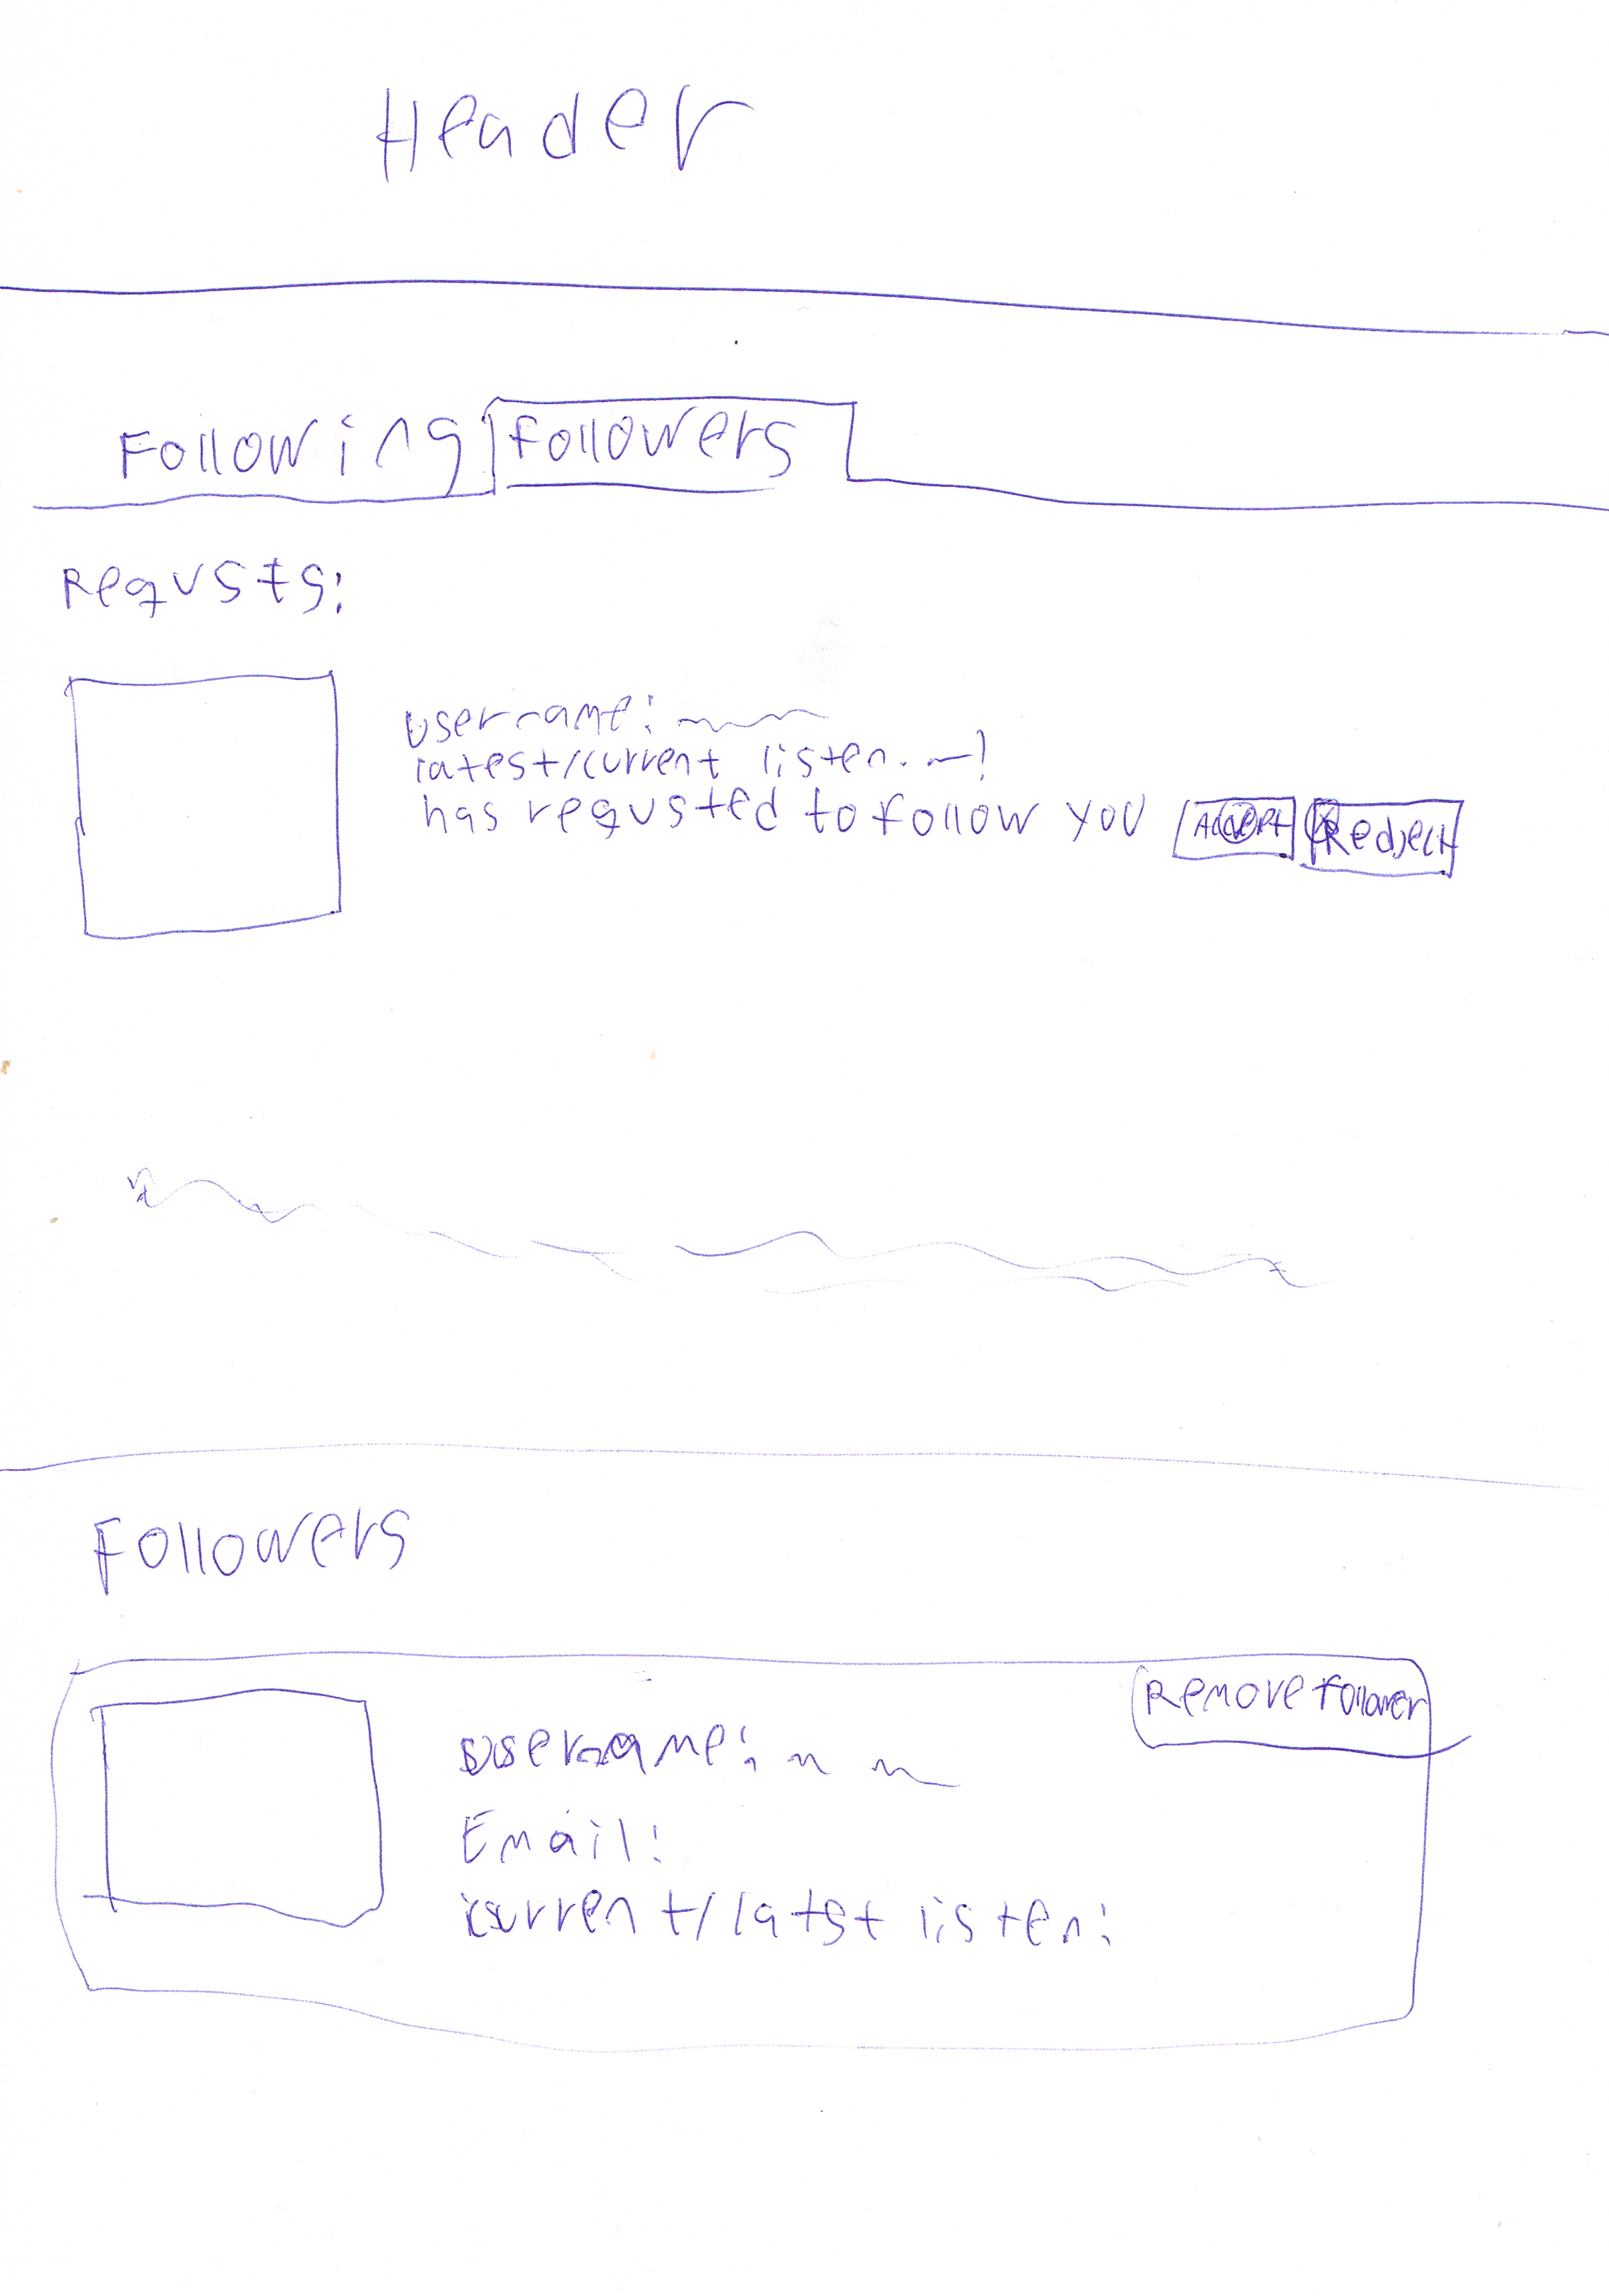 Header
Following Followers
Requsts:
username:
latest/current listen.
has requsted to follow you Accept Redject
Followers
Remove follower
username:
Email:
current/latst listen: